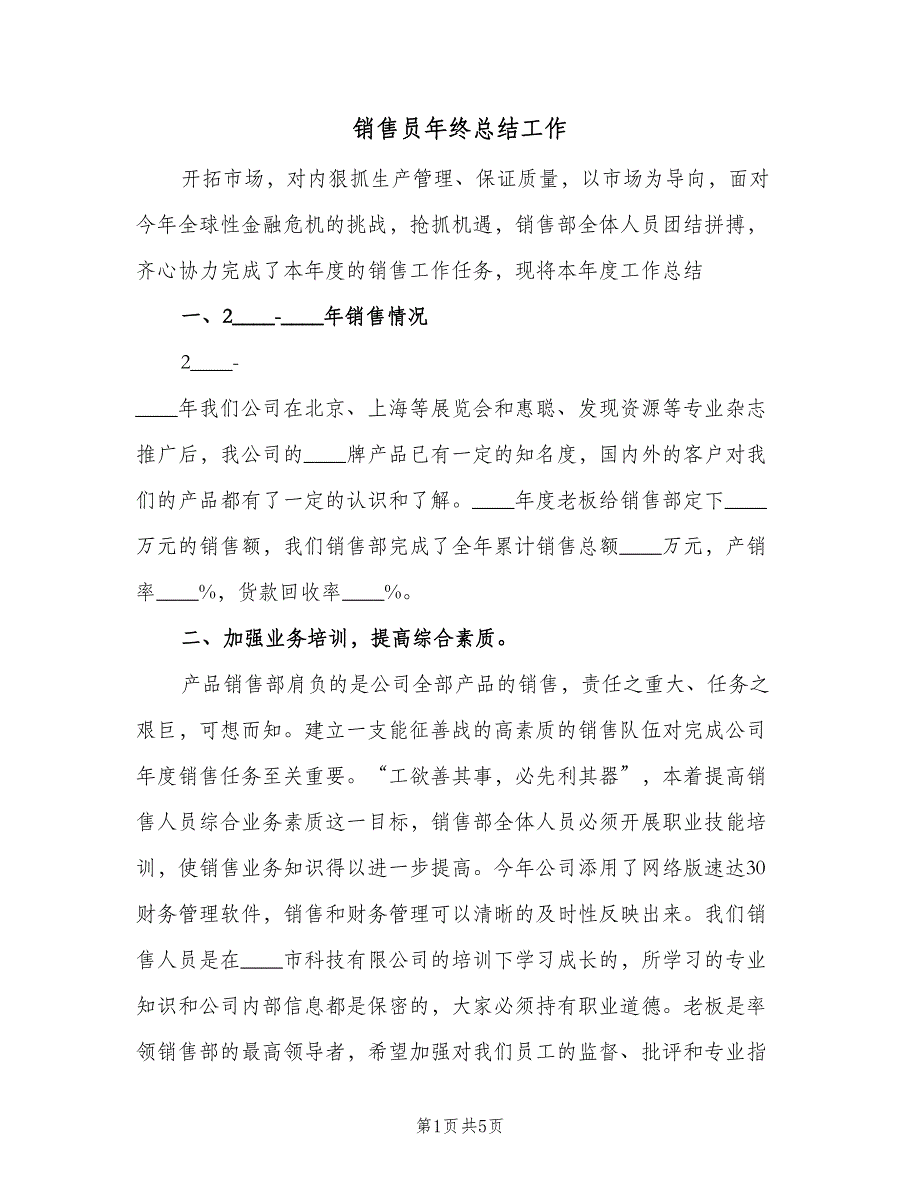 销售员年终总结工作
开拓市场，对内狠抓生产管理、保证质量，以市场为导向，面对
今年全球性金融危机的挑战，抢抓机遇，销售部全体人员团结拼搏，
齐心协力完成了本年度的销售工作任务，现将本年度工作总结
一、2____-____年销售情况
2____-
____年我们公司在北京、上海等展览会和惠聪、发现资源等专业杂志
推广后，我公司的____牌产品已有一定的知名度，国内外的客户对我
们的产品都有了一定的认识和了解。____年度老板给销售部定下____
万元的销售额，我们销售部完成了全年累计销售总额____万元，产销
率____%，货款回收率____%。
二、加强业务培训，提高综合素质。
产品销售部肩负的是公司全部产品的销售，责任之重大、任务之
艰巨，可想而知。建立一支能征善战的高素质的销售队伍对完成公司
年度销售任务至关重要。“工欲善其事，必先利其器”，本着提高销
售人员综合业务素质这一目标，销售部全体人员必须开展职业技能培
训，使销售业务知识得以进一步提高。今年公司添用了网络版速达30
财务管理软件，销售和财务管理可以清晰的及时性反映出来。我们销
售人员是在____市科技有限公司的培训下学习成长的，所学习的专业
知识和公司内部信息都是保密的，大家必须持有职业道德。老板是率
领销售部的最高领导者，希望加强对我们员工的监督、批评和专业指
第1页 共5页